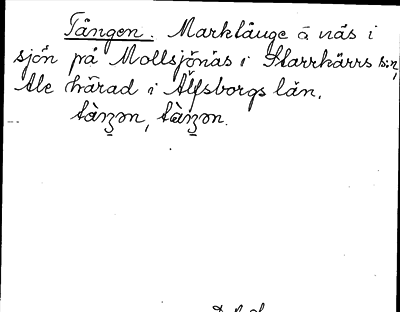 Tången. Marklänge å näs i
sjön på Mollsjönäs i Starrkärrs s:n,
Ale härad i Älfsborgs län.